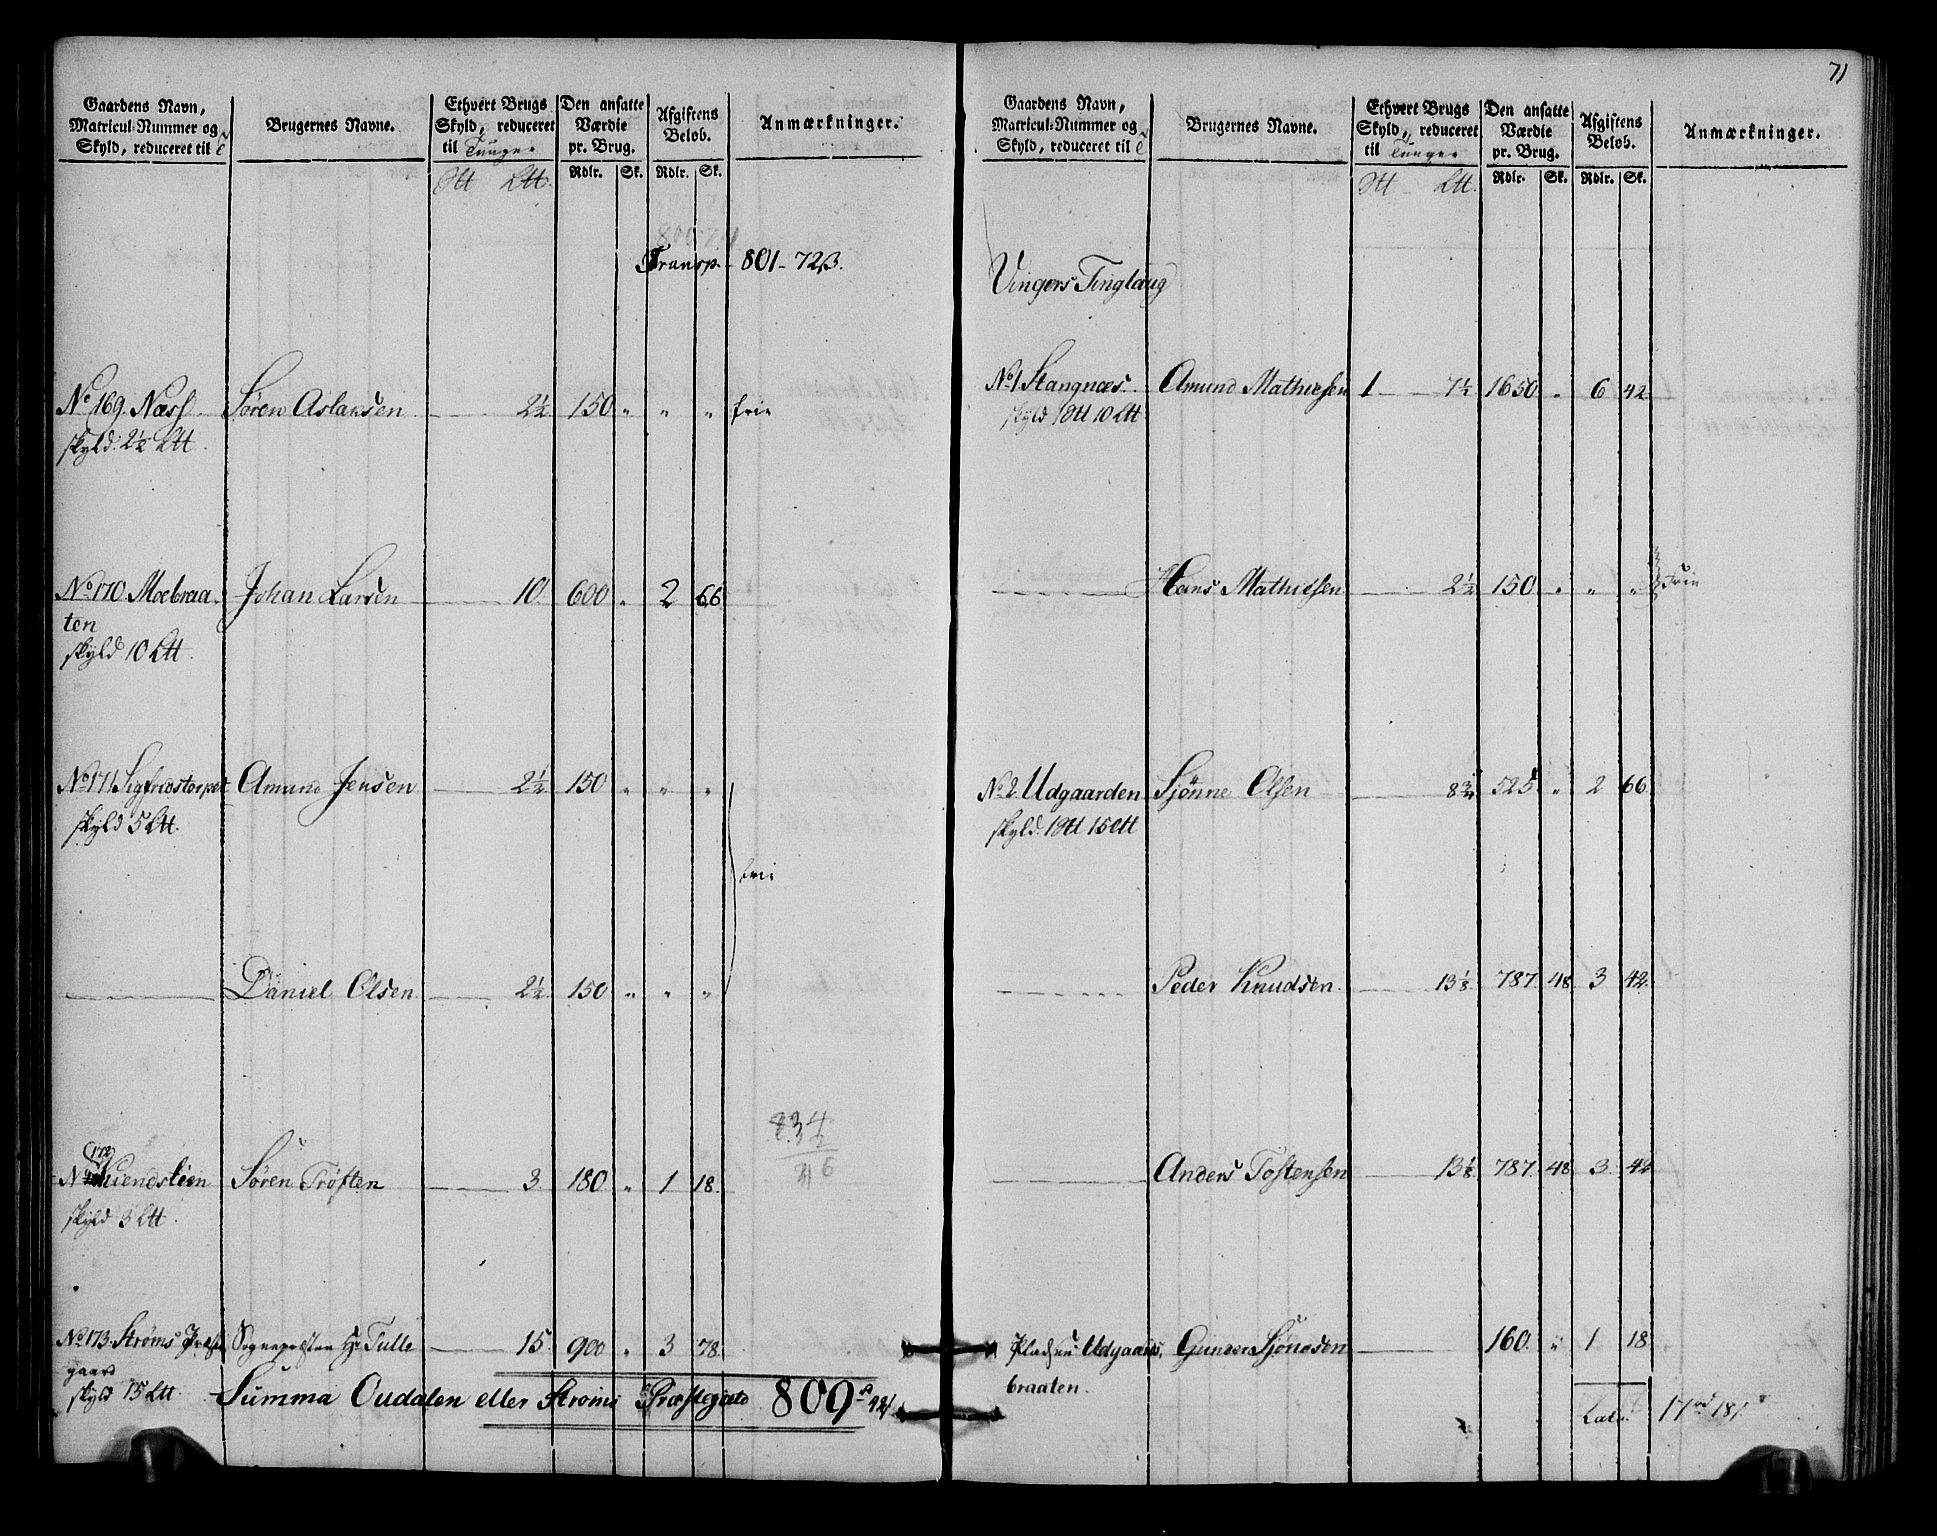 71
Gaardens Navn, Matricul-Nummer og Skyld, reduceret til
Brugernes Navne.
Ethvert Brugs Skyld, reduceret til Tunger
Den ansatte Værdie pr. Brug.
Afgiftens Beløb.
Anmærkninger.
Rdlr. Sk. Rdlr. Sk.
Transp. 801 - 72 β.
No 169. Næss Søren Aslaksen 2½ 150 " " " frie
skyld 2½ Ltt
No 170 Moebraa- Johan Larsen 10 600 " 2 66
ten
skyld 10 Ltt
No 171 Sigfridstorpet Amund Jensen 2½ 150 " " "
skyld 5 Ltt.
frie
Daniel Olsen 2½ 150 " " "
834
172
No Søren Trøften 3 180 " 1 18
skyld 3 Ltt
No 173. Strøms Præste Sognepræsten Hr Tulle 15 900 " 3 78
gaard
skyld 15 Ltt
Summa Oudalen eller Strøms Præstegield 809
Gaardens Navn, Matricul-Nummer og Skyld, reduceret til
Brugernes Navne.
Ethvert Brugs Skyld, reduceret til Tunger
Den ansatte Værdie pr. Brug.
Afgiftens Beløb.
Anmærkninger.
Rdlr. Sk. Rdlr. Sk.
Vingers Tinglaug
No 1. Stangnæs Amund Mathiesen 1 7½ 1650 " 6 42
skyld 1 Stt 10 Ltt
Hans Mathiesen 2½ 150 " " " Frie
No 2. Udgaarden Sjønne Olsen 8¾ 525 " 2 66
skyld 1 Stt 15 Ltt
Peder Knudsen 13⅛ 787 48 3 42
Anders Tostensen 13⅛ 787 48 3 42
Pladsen Udgaards Gunder Sjønesen 160 " 1 18
braaten.
Lat. 17 rd 18